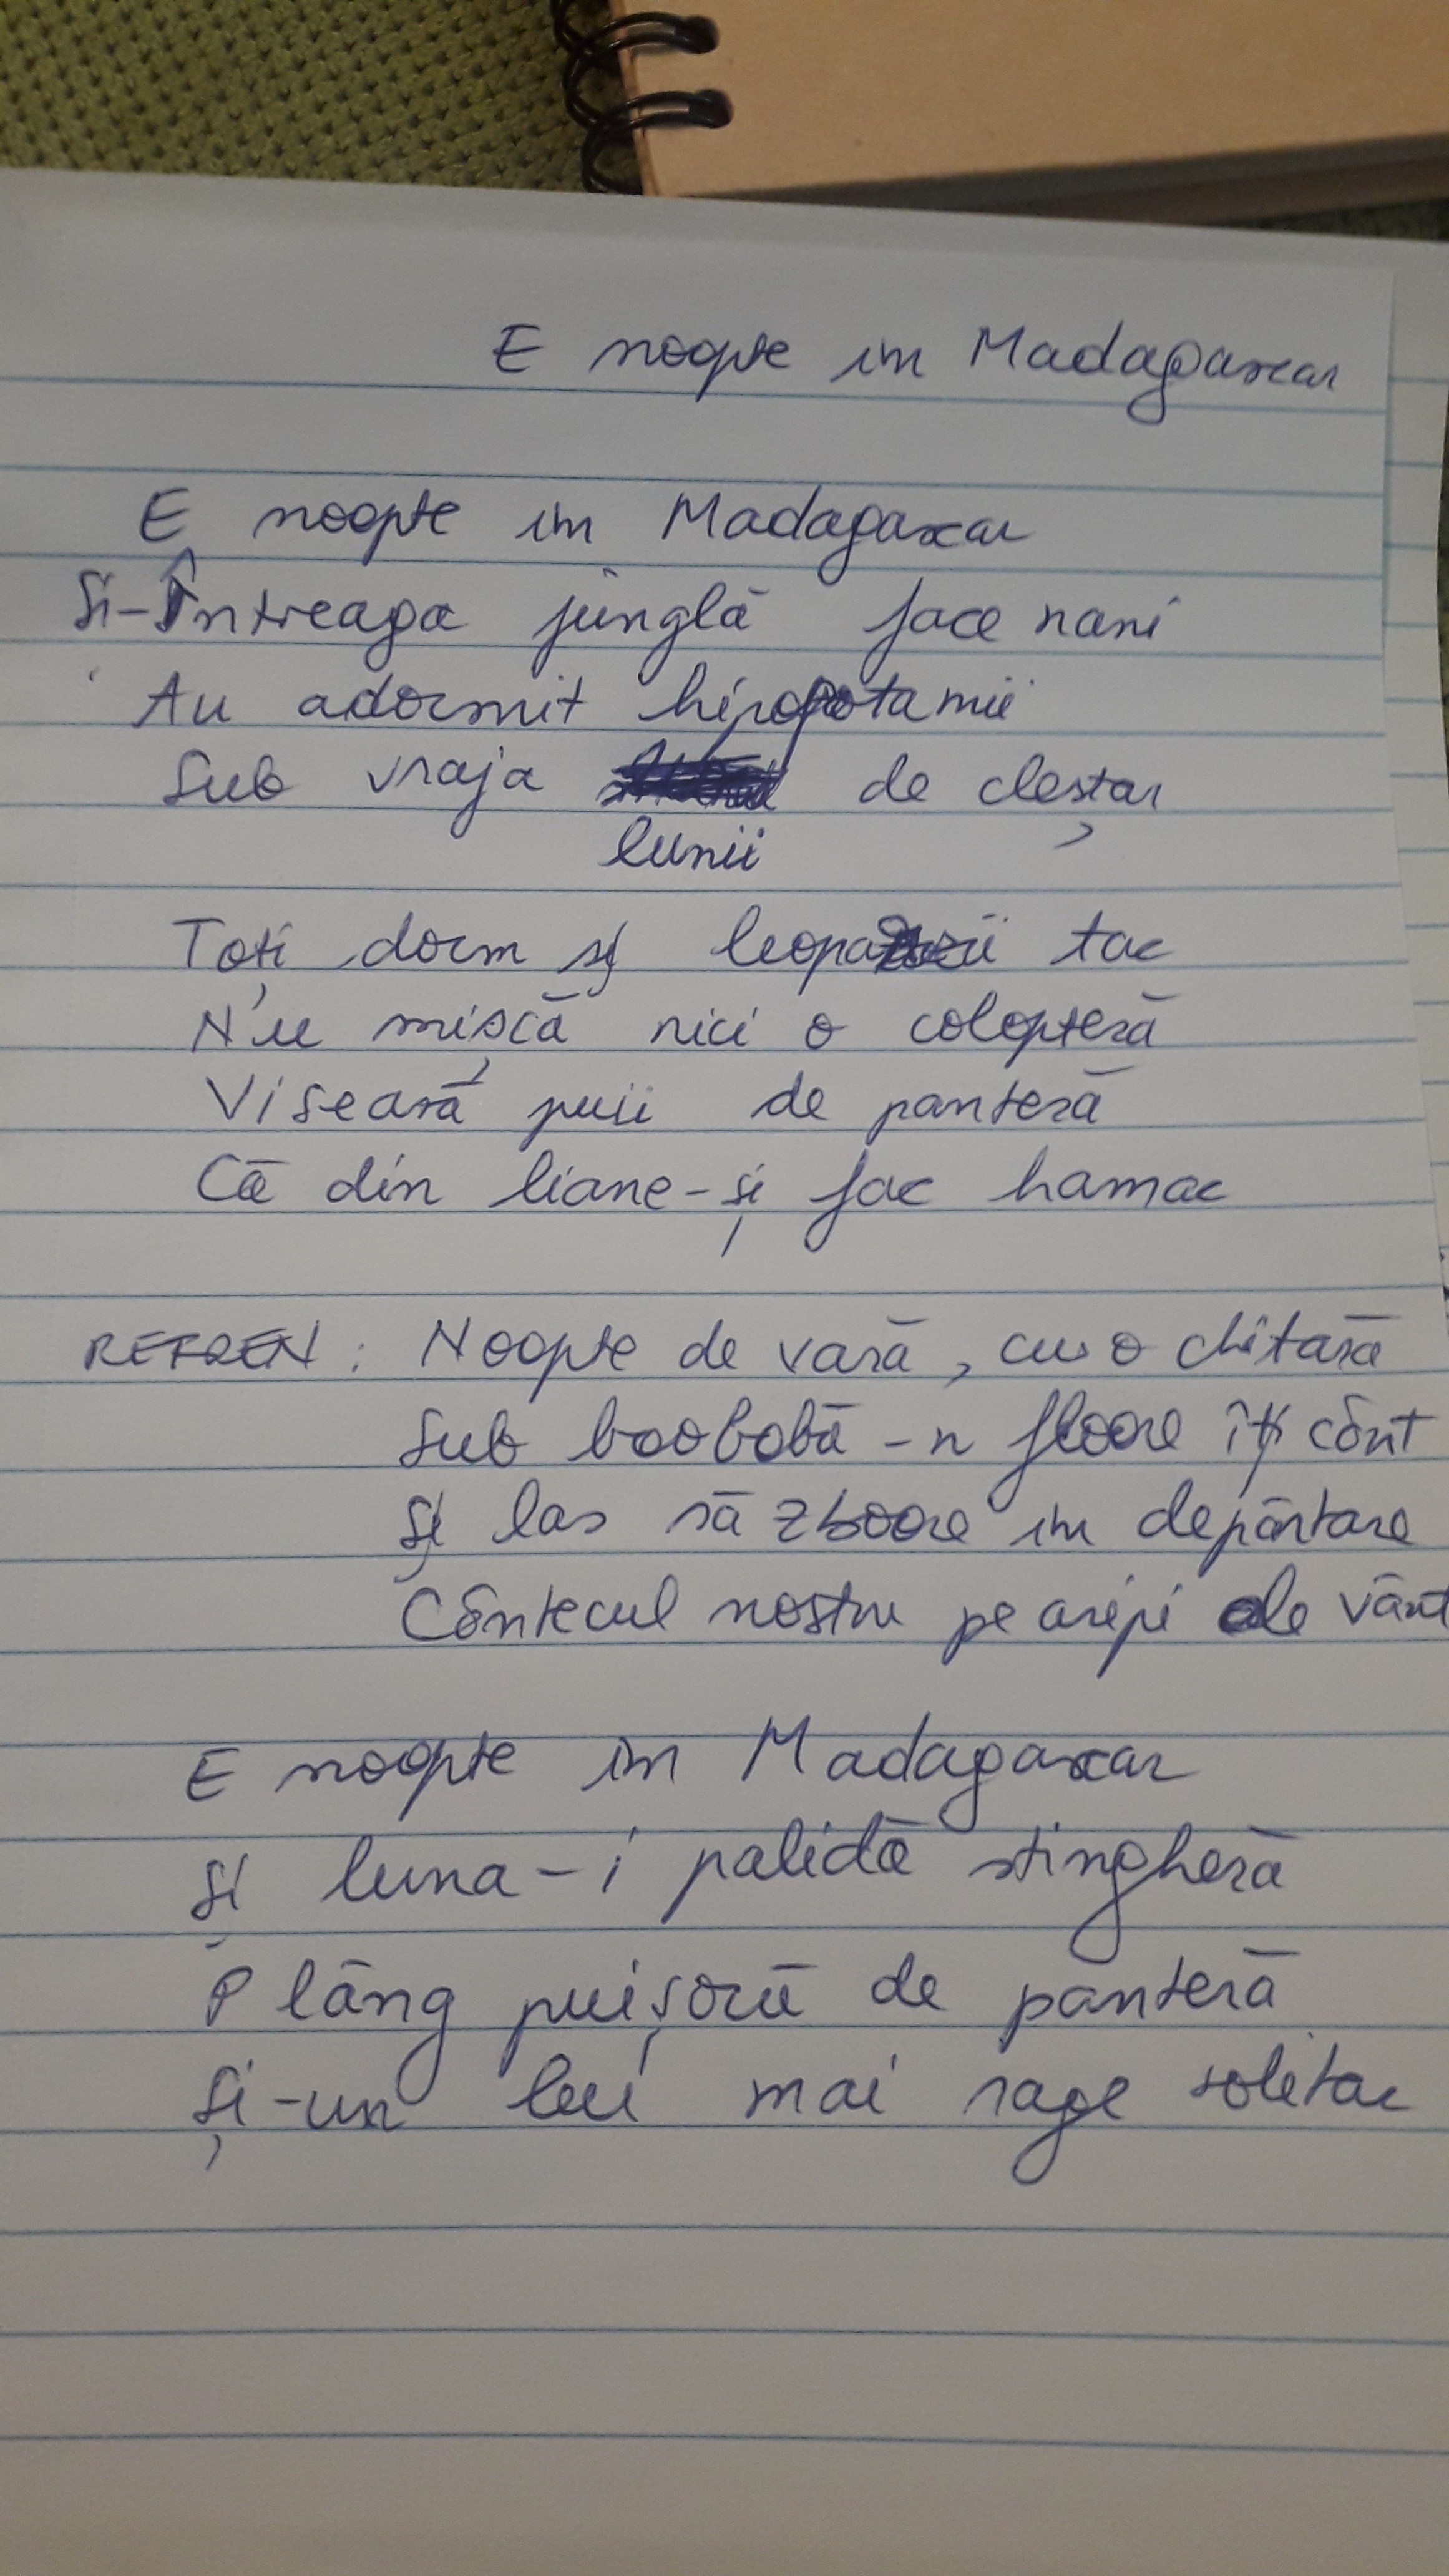 E noapte in Madagascar
E noapte in Madagascar
Si-Întreaga junglă face nani
Au adormit hipopotamii
Sub vraja lunii de cleștar
Toți dorm și leoparzii tac
Nu mișcă nici o coleopteră
Visează puii de panteră
Că din liane-și fac hamac
REFREN: Noapte de vară, cu o chitară
Sub baobabă-n floare îți cânt
Și las să zboare in depărtare
Cântecul nostru pe aripi ale vânt
E noapte in Madagascar
Și luna-i palidă stingheră
Plâng puișorii de panteră
Și-un leu mai rage solitar